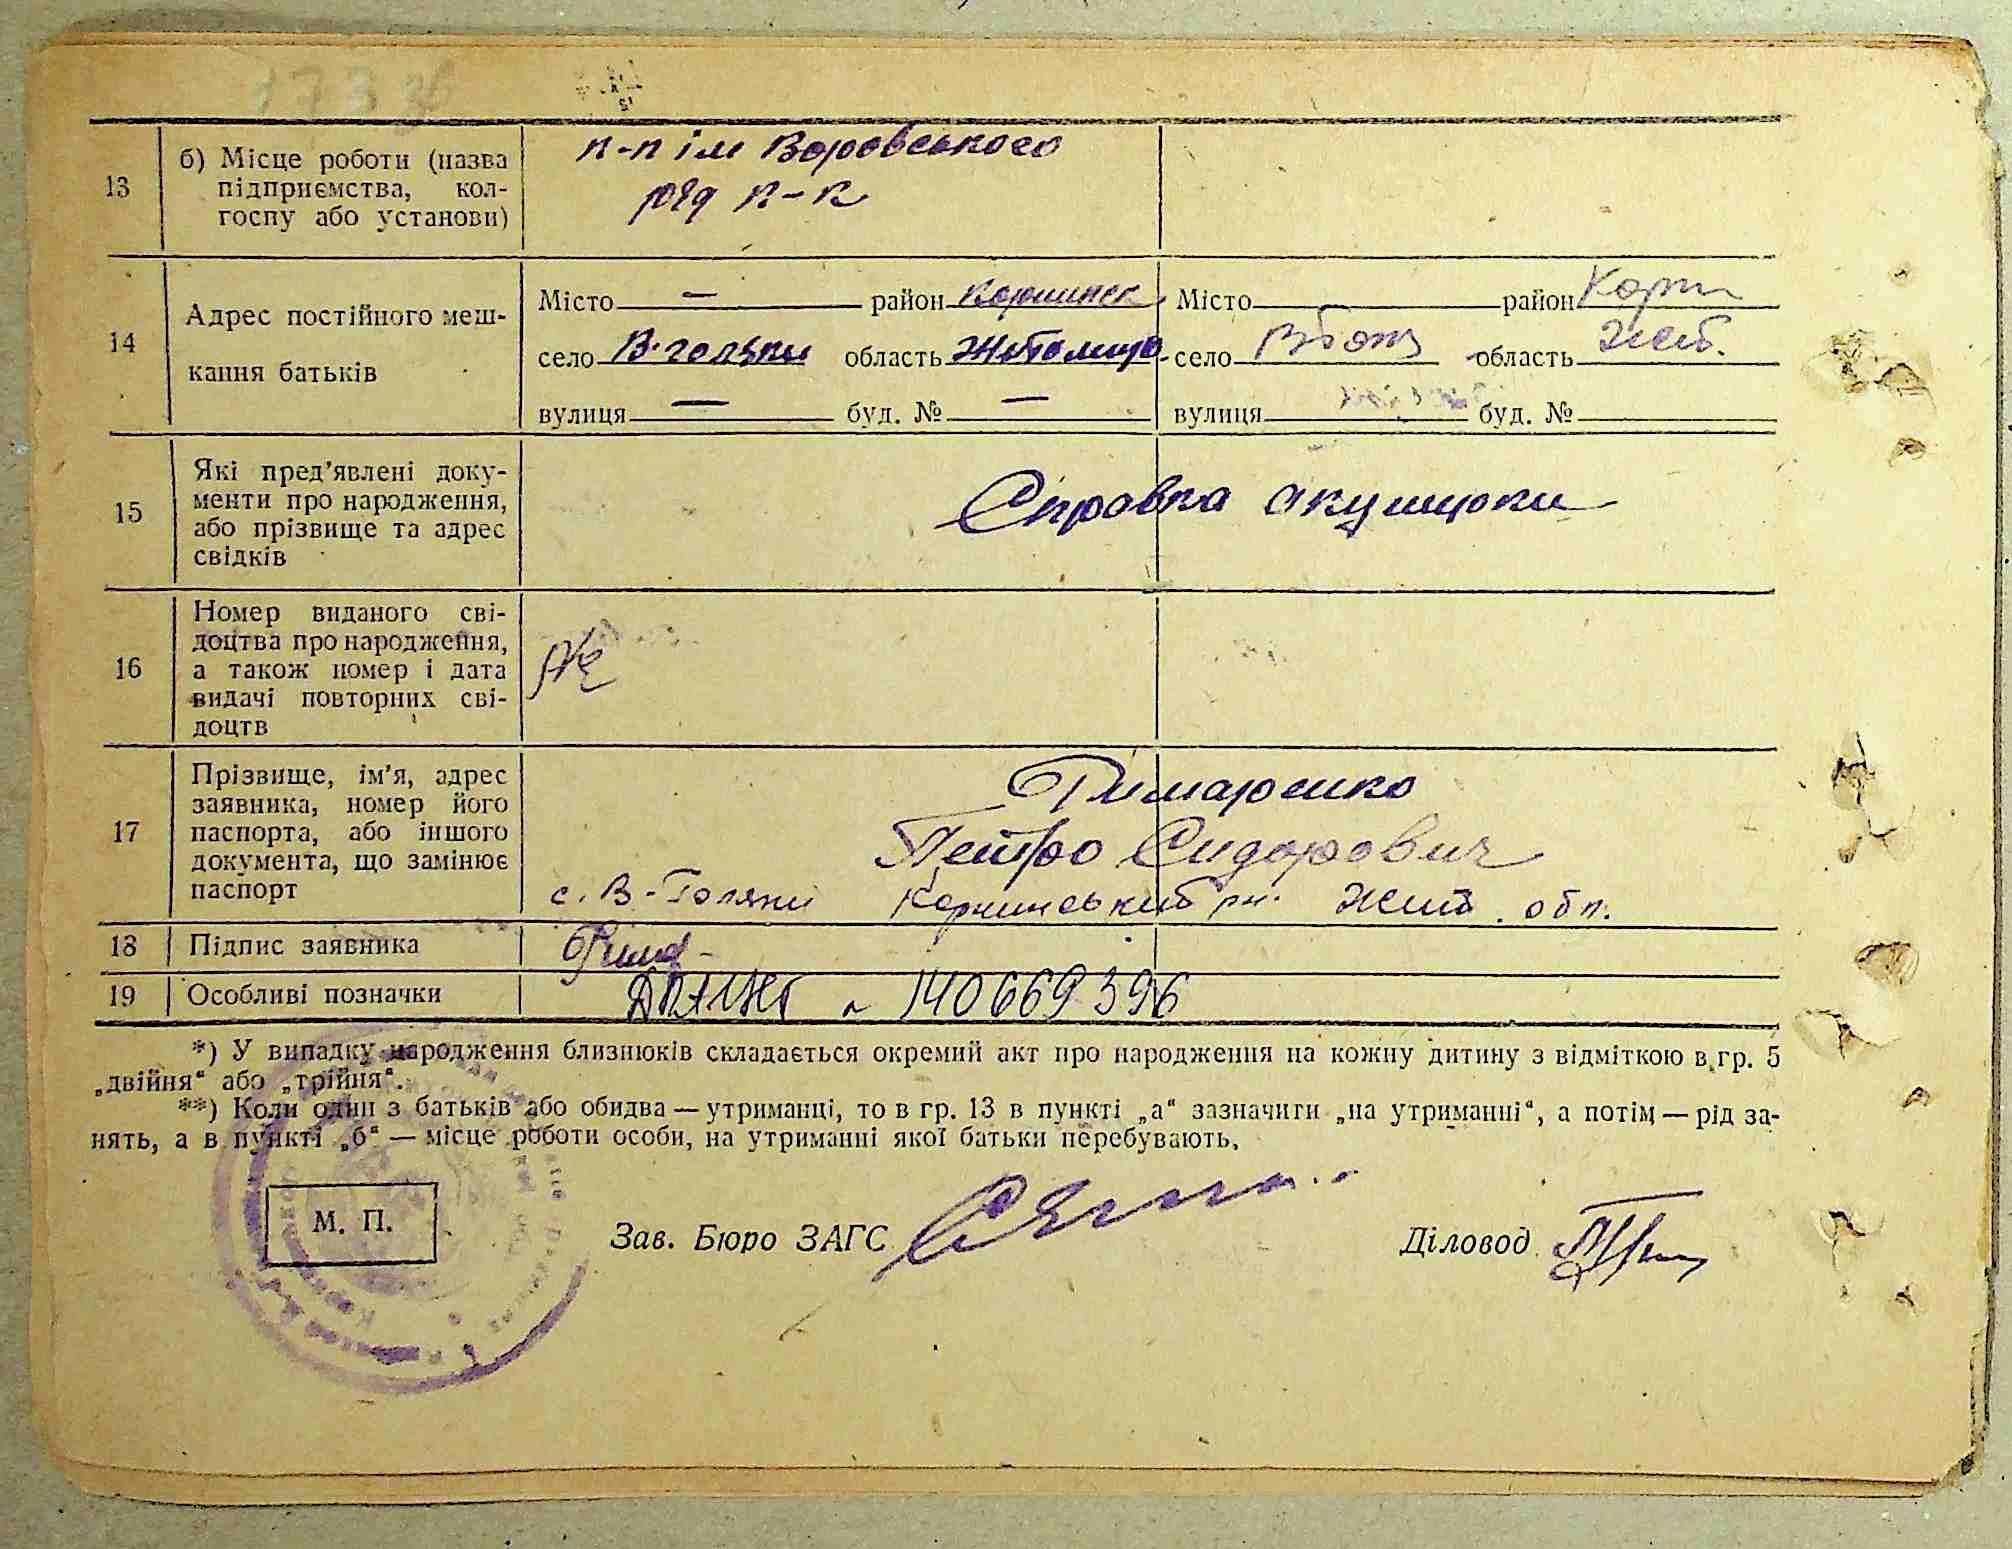 13
б) Місце роботи (назва
підприємства, кол-
госпу або установи)
к-п ім Воровського
ряд к-к
14
Адрес постійного меш-
кання батьків
Місто — район Корнинск
село В. голяки область Житомир
вулиця — буд. № —
Місто район Корн
село область Жит.
вулиця буд. №
15
Які пред'явлені доку-
менти про народження,
або прізвище та адрес
свідків
Справка акушерки
16
Номер виданого сві-
доцтва про народження,
а також номер і дата
видачі повторних сві-
доцтв
№
17
Прізвище, ім'я, адрес
заявника, номер його
паспорта, або іншого
документа, що замінює
паспорт
Петро Сидорович
с. В-Голяки Корнинський рн. Жит. обл.
18
Підпис заявника
19
Особливі позначки
140669396
*) У випадку народження близнюків складається окремий акт про народження на кожну дитину з відміткою в гр. 5
„двійня“ або „трійня“.
**) Коли один з батьків або обидва — утриманці, то в гр. 13 в пункті „а“ зазначити „на утриманні“, а потім — рід за-
нять, а в пункті „б“ — місце роботи особи, на утриманні якої батьки перебувають.
М. П.
Зав. Бюро ЗАГС
Діловод